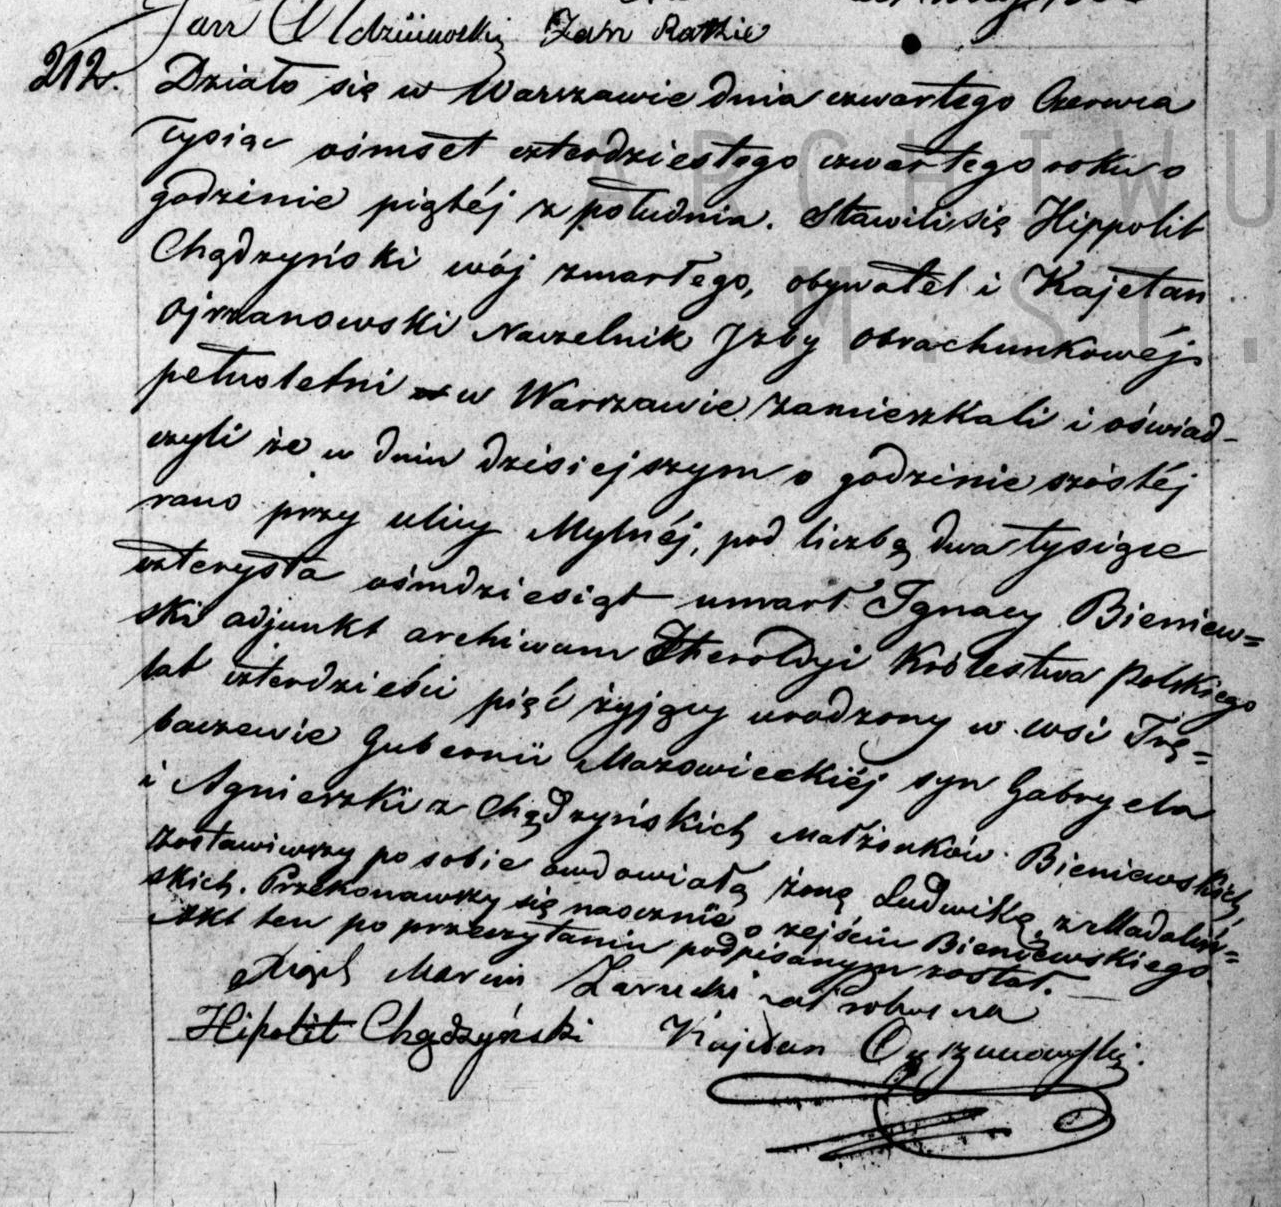 Jan Oldziiewski Jan Ratkie
212. Działo się w Warszawie dnia czwartego Czerwca
tysiąc ośmset czterdziestego czwartego roku o
godzinie piątéj z południa. Stawili się Hippolit
Chądzyński wój zmarłego, obywatel i Kajetan
Ojrzanowski Naczelnik Jzby Obrachunkowéj
pełnoletni w Warszawie zamieszkali i oświad-
czyli że w dniu dzisiejszym o godzinie szóstéj
rano przy ulicy Mylnéj, pod liczbą dwa tysiące
czterysta ośmdziesiąt umarł Ignacy Bieniew=
ski adjunkt archiwum Heroldyi Królestwa Polskiego
lat czterdzieści pięć żyjący urodzony w wsi Trę=
baczewie Gubernii Mazowieckiéj syn Gabryela
i Agnieszki z Chądzyńskich Małżonków Bieniewskich,
zostawiwszy po sobie owdowiałą żonę Ludwikę z Madaliń=
skich. Przekonawszy się naocznie o zejściu Bieniewskiego
Akt ten po przeczytaniu podpisanym został.
Marcin
Hipolit Chądzyński Kajetan Oyrzanowski
ARCHIWU
M. ST.